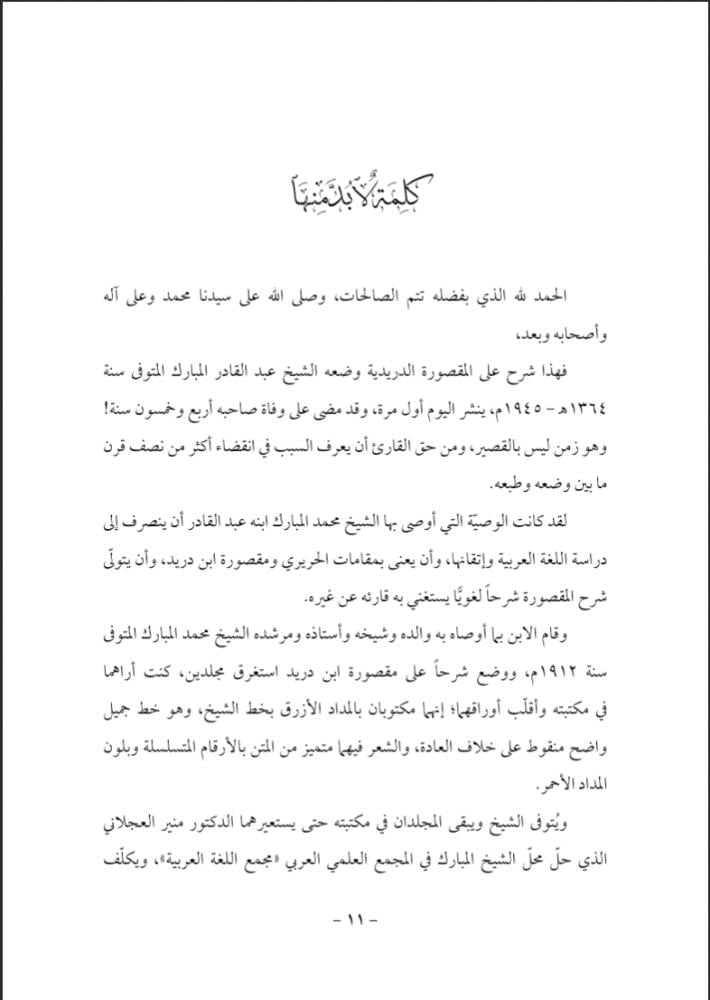 كَلِمَةٌ لَابُدَّ مِنهَا
الحمد لله الذي بفضله تتم الصالحات، وصلى الله على سيدنا محمد وعلى آله
وأصحابه وبعد،
فهذا شرح على المقصورة الدريدية وضعه الشيخ عبد القادر المبارك المتوفى سنة
١٣٦٤هـ - ١٩٤٥م، ينشر اليوم أول مرة، وقد مضى على وفاة صاحبه أربع وخمسون سنة!
وهو زمن ليس بالقصير، ومن حق القارئ أن يعرف السبب في انقضاء أكثر من نصف قرن
ما بين وضعه وطبعه.
لقد كانت الوصيّة التي أوصى بها الشيخ محمد المبارك ابنه عبد القادر أن ينصرف إلى
دراسة اللغة العربية وإتقانها، وأن يعنى بمقامات الحريري ومقصورة ابن دريد، وأن يتولّى
شرح المقصورة شرحاً لغويًّا يستغني به قارئه عن غيره.
وقام الابن بما أوصاه به والده وشيخه وأستاذه ومرشده الشيخ محمد المبارك المتوفى
سنة ١٩١٢م، ووضع شرحاً على مقصورة ابن دريد استغرق مجلدين، كنت أراهما
في مكتبته وأقلّب أوراقهما؛ إنهما مكتوبان بالمداد الأزرق بخط الشيخ، وهو خط جميل
واضح منقوط على خلاف العادة، والشعر فيهما متميز من المتن بالأرقام المتسلسلة وبلون
المداد الأحمر.
ويُتوفى الشيخ ويبقى المجلدان في مكتبته حتى يستعيرهما الدكتور منير العجلاني
الذي حلّ محلّ الشيخ المبارك في المجمع العلمي العربي «مجمع اللغة العربية»، ويكلّف
- ١١ -